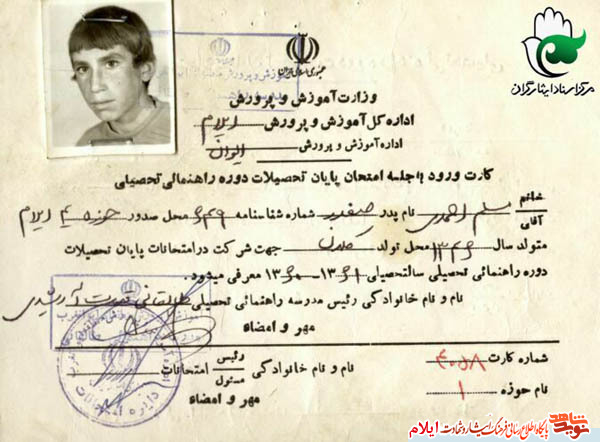 جمهوری اسلامی ایران
مرکز اسناد ایثارگران
وزارت آموزش و پرورش
اداره کل آموزش و پرورش ایلام
اداره آموزش و پرورش ایوان
کارت ورود به جلسه امتحان پایان تحصیلات دوره راهنمائی تحصیلی
خانم
آقای مسلم احمدی نام پدر صیفور شماره شناسنامه ۶۴۹ محل صدور حوزه ایلام
متولد سال ۱۳۴۶ محل تولد جهت شرکت در امتحانات پایان تحصیلات
دوره راهنمائی تحصیلی سالتحصیلی ۱۳۶۱-۱۳۶۰ معرفی میشود.
نام و نام خانوادگی رئیس مدرسه راهنمائی تحصیلی طالقانی قدرت اله رشیدی
مهر و امضاء
شماره کارت ۴۰۵۸
نام و نام خانوادگی رئیس مسئول امتحانات
نام حوزه ۱
مهر و امضاء
نوید شاهد پایگاه اطلاع رسانی فرهنگ ایثار و شهادت ایلام